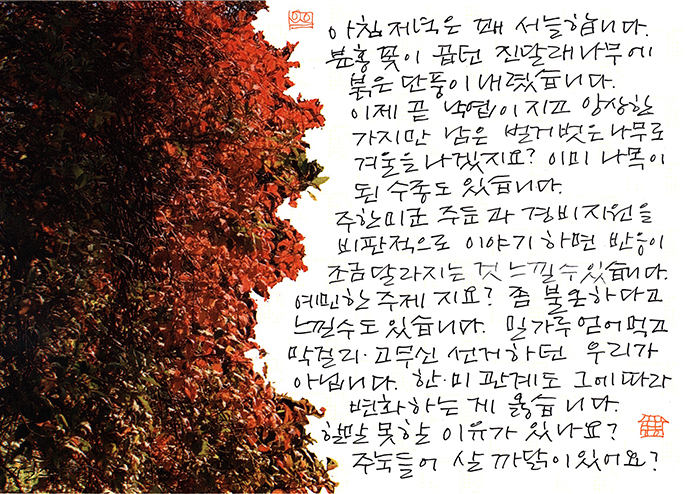 아침 저녁은 꽤 서늘합니다.
분홍 꽃이 곱던 진달래나무에
붉은 단풍이 내렸습니다.
이제 곧 낙엽이 지고 앙상한
가지만 남은 벌거벗은 나무로
겨울을 나겠지요? 이미 나목이
된 수종도 있습니다.
주한미군 주둔과 경비지원을
비판적으로 이야기 하면 반응이
조금 달라지는 것 느낄 수 있습니다.
예민한 주제 지요? 좀 불온하다고
느낄수도 있습니다. 밀가루 얻어먹고
막걸리·고무신 선거하던 우리가
아닙니다. 한·미 관계도 그에 따라
변화하는 게 옳습니다.
할말 못할 이유가 있나요?
주눅들어 살 까닭이 있어요?